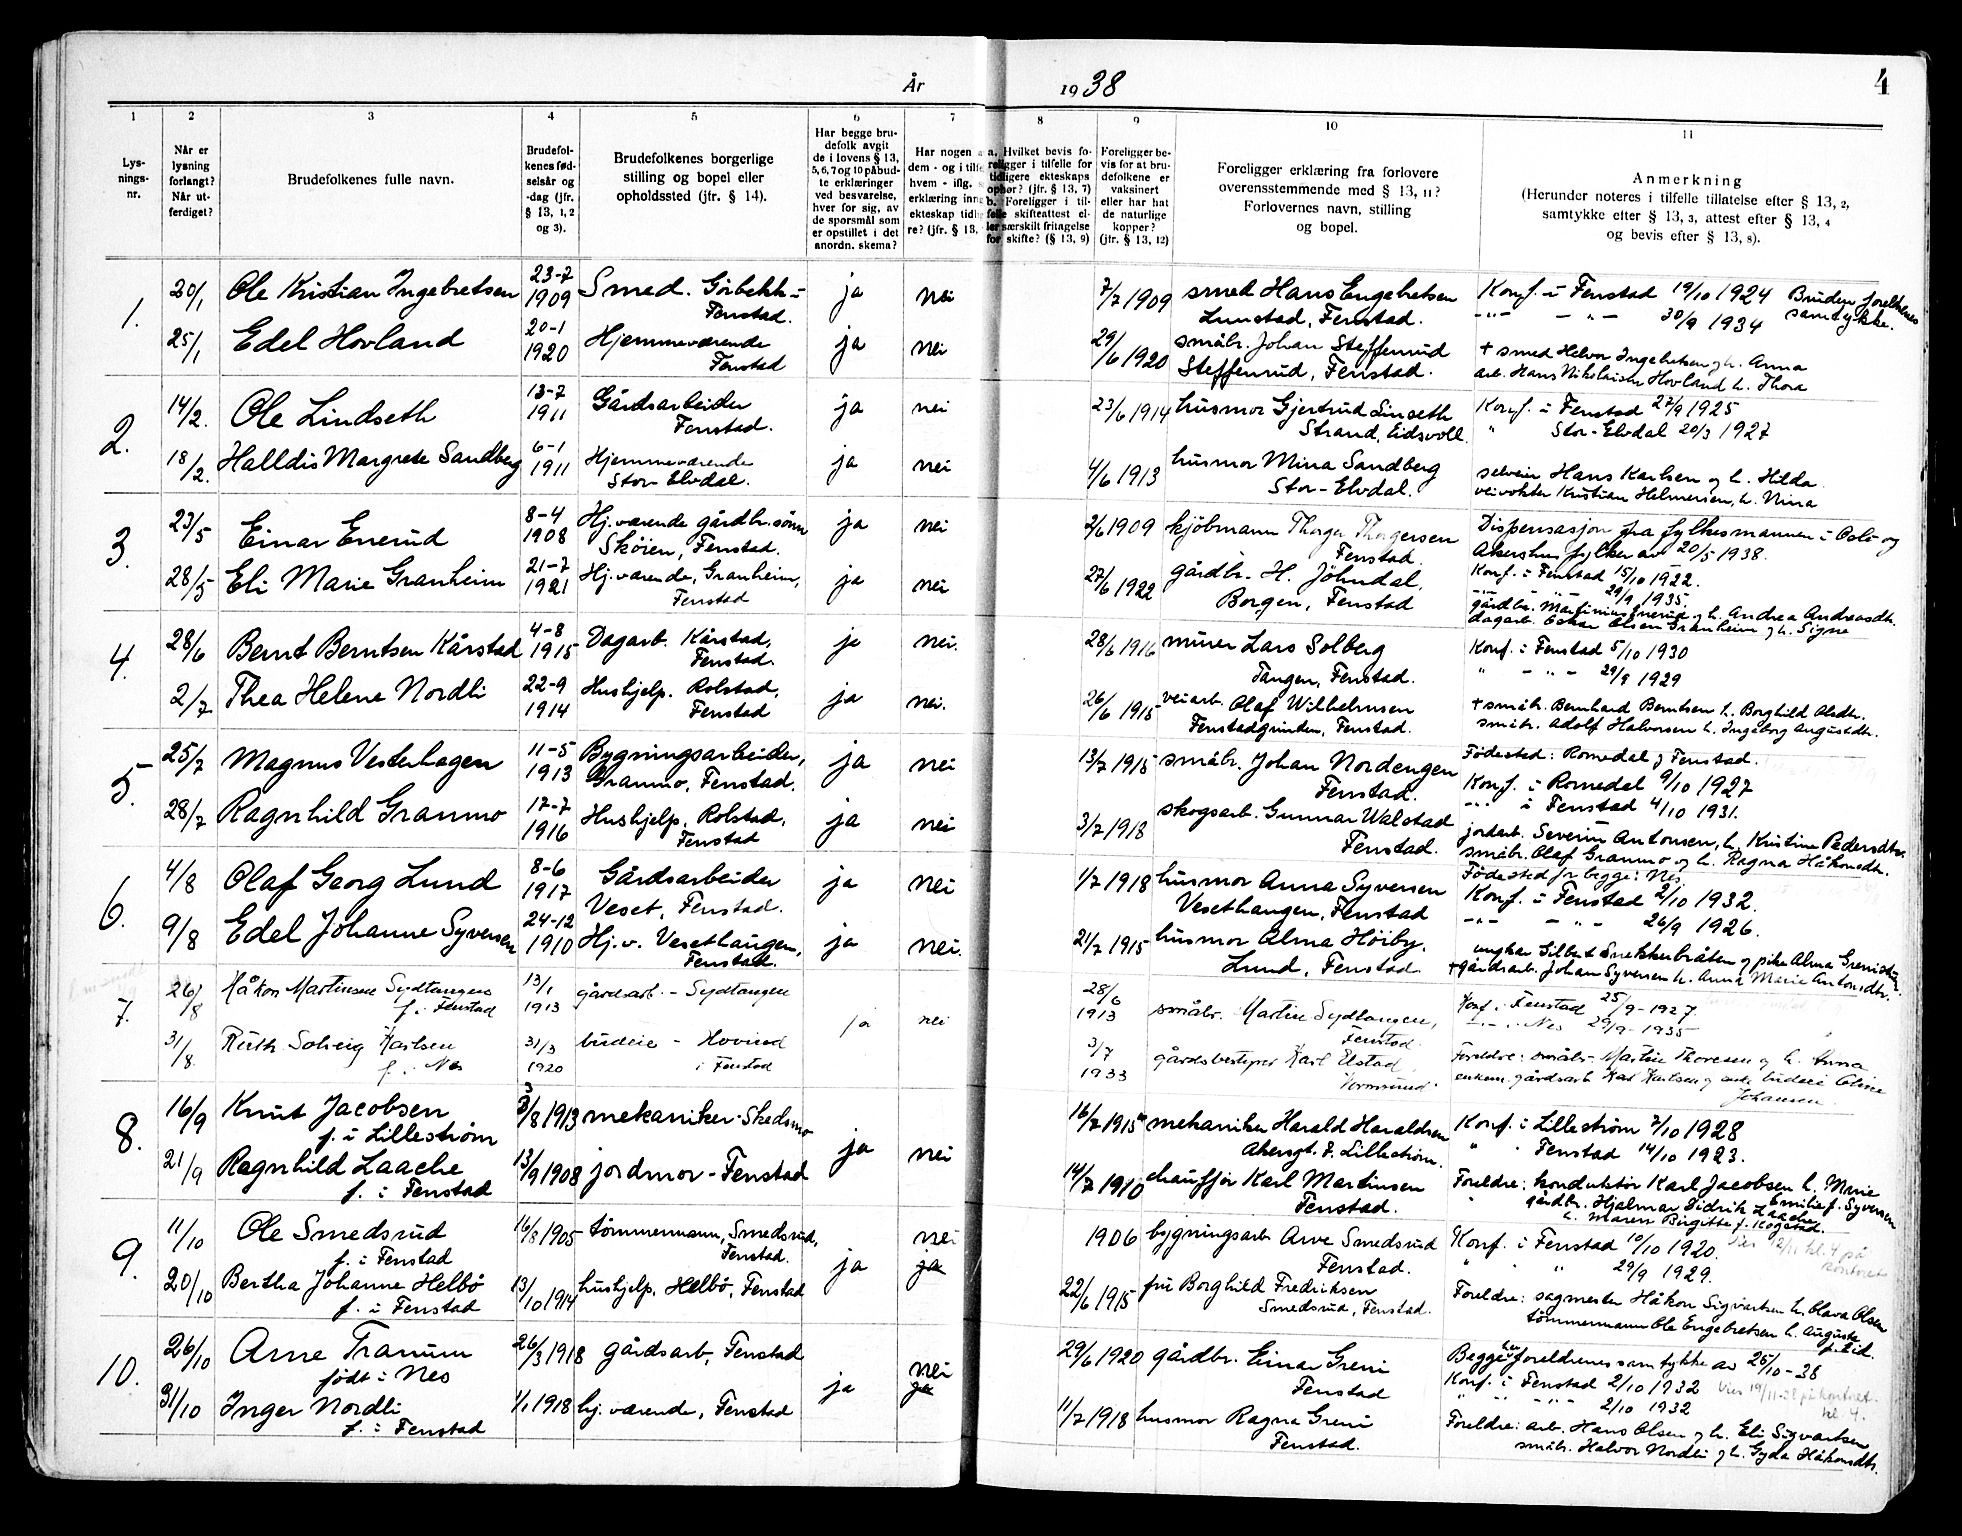 År 1938
4
1 2 3 4 5 6 7 8 9 10 11
Lys-
nings-
nr.
Når er
lysning
forlangt?
Når ut-
ferdiget?
Brudefolkenes fulle navn.
Brudefol-
kenes fød-
selsår og
-dag (jfr.
§ 13, 1, 2
og 3).
Brudefolkenes borgerlige
stilling og bopel eller
opholdssted (jfr. § 14).
Har begge bru-
defolk avgit
de i lovens § 13,
5, 6, 7 og 10 påbud-
te erklæringer
ved besvarelse,
hver for sig, av
de spørsmål som
er opstillet i det
anordn. skema?
Har nogen a
dem - og i tilf
hvem - iflg.
erklæring inng
ekteskap tidlig
re? (jfr. § 13,
a. Hvilket bevis fo-
religger i tilfelle for
tidligere ekteskaps
ophør? (jfr. § 13, 7)
b. Foreligger i til-
felle skifteattest el-
ler særskilt fritagelse
for skifte? (§ 13, 9)
Foreligger be-
vis for at bru-
defolkene er
vaksinert
eller har hat
de naturlige
kopper?
(jfr. § 13, 12)
Foreligger erklæring fra forlovere
overensstemmende med § 13, 11?
Forlovernes navn, stilling
og bopel.
Anmerkning
(Herunder noteres i tilfelle tillatelse efter § 13, 2,
samtykke efter § 13, 3, attest efter § 13, 4
og bevis efter § 13, 8).
1. 20/1 Ole Kristian Ingebretsen 23-7 1909 Smed. Gørbekk i Fenstad. ja nei 7/7 1909 smed Hans Engebretsen Lunstad, Fenstad. Konf. i Fenstad 19/10 1924 Bruden foreldrenes samtykke.
-"- - "- 30/9 1934
25/1 Edel Hovland 20-1 1920 Hjemmeværende Fenstad ja nei 29/6 1920 småbr. Johan Steffenrud Steffenrud, Fenstad. + smed Helvor Ingebretsen og h. Anna
arb. Hans Nikolaisen Hovland h. Thora
2. 14/2. Ole Lindseth 13-7 1911 Gårdsarbeider Fenstad. ja nei 23/6 1914 husmor Gjertrud Linseth Strand, Eidsvoll. Konf. i Fenstad 27/9 1925
" Stor-Elvdal 20/3 1927
18/2. Halldis Margrete Sandberg 6-1 1911 Hjemmeværende Stor-Elvdal. ja nei 4/6 1913 husmor Mina Sandberg Stor-Elvdal. selveier Hans Karlsen og h. Hilda
veivokter Kristian Helmersen, h. Nina
3. 23/5 Einar Enerud 8-4 1908 Hj.værende gårdbr. sønn Skøien, Fenstad. ja nei 2/6 1909 kjøbmann Thorger Thorgersen Fenstad. Dispensasjon fra fylkesmannen i Oslo og
Akershus fylker av 20/5 1938.
28/5 Eli Marie Granheim 21-7 1921 Hj.værende, Granheim, Fenstad ja nei 27/6 1922 gårdbr. H. Jöhndal, Borgen, Fenstad Konf. i Fenstad 15/10 1922.
-"- - "- 29/9 1935
gårdbr. Martinius Enerud og h. Andrea Andreasdtr.
dagarb. Oskar Olsen Granheim og h. Signe
4. 28/6 Bernt Berntsen Kårstad 4-8 1915 Dagarb. Kårstad, Fenstad. ja nei. 28/6 1916 murer Lars Solberg Tangen, Fenstad. Konf. i Fenstad 5/10 1930
" - " - 29/9 1929
2/7 Thea Helene Nordli 22-9 1914 Hushjelp. Rolstad, Fenstad ja nei. 26/6 1915 veiarb. Olaf Wilhelmsen Fenstadgrinden, Fenstad. + småbr. Bernhard Berntsen h. Borghild Olsdtr.
småbr. Adolf Halvorsen h. Ingeborg Augustdtr.
5. 25/7 Magnus Vesterhagen 11-5 1913 Bygningsarbeider, Granmo, Fenstad. ja nei 13/7 1915 småbr. Johan Nordengen Fenstad. Fødested: Romedal og Fenstad.
Konf. i Romedal 9/10 1927
-"- i Fenstad 4/10 1931.
28/7 Ragnhild Granmo 17-7 1916 Hushjelp, Rolstad, Fenstad ja nei 3/7 1918 skogsarb. Gunnar Walstad Fenstad. jordarb. Severin Antonsen, h. Kristine Pedersdtr.
småbr. Olaf Granmo og h. Ragna Håkonsdtr.
6. 4/8 Olaf Georg Lund 8-6 1917 Gårdsarbeider Veset, Fenstad. ja nei 1/7 1918 husmor Anna Syversen Vesethaugen, Fenstad Fødested for begge: Nes
Konf. i Fenstad 2/10 1932.
-"- - "- 26/9 1926.
9/8 Edel Johanne Syversen 24-12 1910 Hj.v. Vesethaugen, Fenstad. ja nei. 21/7 1915 husmor Alma Høiby, Lund, Fenstad. ungkar Gilbert Snekkerbråten og pike Alma
+gårdsarb. Johan Syversen h. Anna Marie Antonsdtr.
7. 26/8 Håkon Martinsen Sydtangen f. i Fenstad 13/1 1913 gårdsarb. - Sydtangen ja nei 28/6 1913 småbr. Martin Sydtangen, Fenstad. Konf. i Fenstad 25/9-1927
-"- i Nes 29/9-1935
31/8. Ruth Solveig Karlsen f. i Nes 31/3 1920 budeie - Hovind i Fenstad 3/7 1933 gårdsbestyrer Karl Elstad Vormsund Foreldre: småbr. Martin Thoresen og h. Anna
enkem. gårdsarb. Karl Karlsen og enke budeie Oline
Johansen.
8. 16/9 Knut Jacobsen f. i Lillestrøm 3/8 1913 mekaniker-Skedsmo ja nei 16/7 1915 mekaniker Harald Haraldsen Akersgt. 7. Lillestrøm. Konf. i Lillestrøm 7/10 1928
" " Fenstad 14/10 1923.
21/9 Ragnhild Laache f. i Fenstad 13/9 1908 jordmor - Fenstad 14/7 1910 chauffør Karl Martinsen Fenstad. Foreldre: konduktør Karl Jacobsen h. Marie
Emilie f. Syversen
" gårdbr. Hjalmar Didrik Laache
h. Maren Birgitte f. Kogstad.
9. 11/10 Ole Smedsrud f. i Fenstad 16/8 1905 tømmermann, Smedsrud, Fenstad. ja nei ja 1906 bygningsarb. Arve Smedsrud Fenstad. Konf. i Fenstad 10/10 1920. Vies 12/11 kl. 4 på kontoret
" " " 29/9 1929.
20/10 Bertha Johanne Helbø f. i Fenstad 13/10 1914 hushjelp, Helbø, Fenstad 22/6 1915 fru Borghild Fredriksen Smedsrud, Fenstad. Foreldre: sagmester Håkon Sigvartsen h. Olava Olsen
tømmermann Ole Engebretsen h. Auguste
10. 26/10 Arne Tranum født i Nes 26/3 1918 gårdsarb, Fenstad ja nei ja 29/6 1920 gårdbr. Einar Greni Fenstad Begge har foreldrenes samtykke av 25/10-38
Konf. i Fenstad 2/10 1932 Vies 19/11-38 på kontoret kl. 4.
" " -"- 2/10 1932
31/10 Inger Nordli f. i Fenstad 1/1 1918 hj.værende, Fenstad 11/7 1918 husmor Ragna Greni Fenstad. Foreldre: arb. Hans Olsen og h. Eli Sigvartsen
småbr. Halvor Nordli og h. Gyda Håkonsdtr.